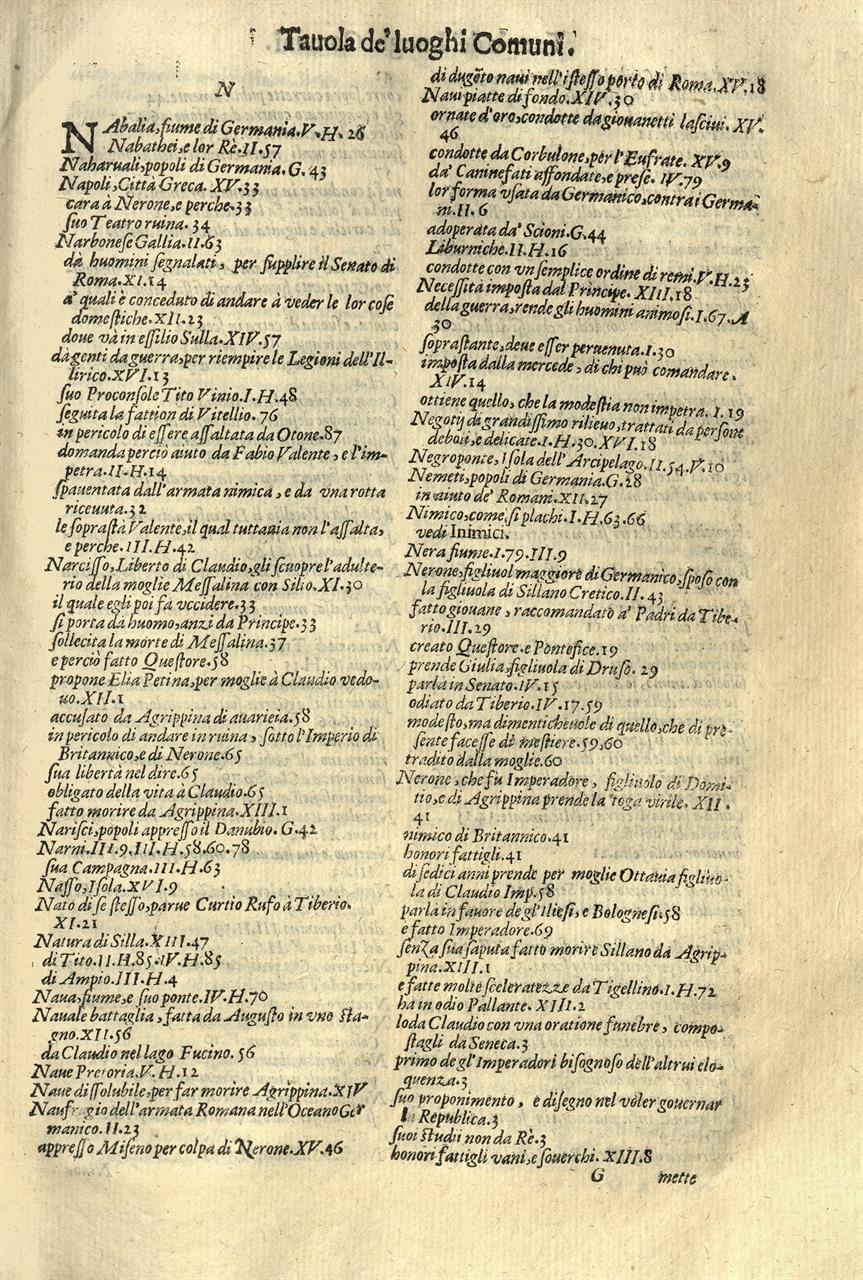 Tauola de' luoghi Comuni.
N
NAbalia, fiume di Germania. V. H. 26
Nabathei, e lor Rè. II. 57
Naharuali, popoli di Germania. G. 43
Napoli, Città Greca. XV. 33
cara à Nerone, e perche. 33
suo Teatro ruina. 34
Narbonese Gallia. II. 63
dà huomini segnalati, per supplire il Senato di
Roma. XI. 14
a' quali è conceduto di andare à veder le lor cose
domestiche. XII. 23
doue và in essilio Sulla. XIV. 57
dà genti da guerra, per riempire le Legioni dell'Il-
lirico. XVI. 13
suo Proconsole Tito Vinio. I. H. 48
seguita la fattion di Vitellio. 76
in pericolo di essere assaltata da Otone. 87
domanda perciò aiuto da Fabio Valente, e l'im-
petra. II. H. 14
spauentata dall'armata nimica, e da vna rotta
riceuuta. 32
le soprastà Valente, il qual tuttauia non l'assalta,
e perche. III. H. 42
Narcisso, Liberto di Claudio, gli scuopre l'adulte-
rio della moglie Messalina con Silio. XI. 30
il quale egli poi fà vccidere. 33
si porta da huomo, anzi da Principe. 33
sollecita la morte di Messalina. 37
e perciò fatto Questore. 58
propone Elia Petina, per moglie à Claudio vedo-
uo. XII. 1
accusato da Agrippina di auaritia. 58
in pericolo di andare in ruina, sotto l'Imperio di
Britannico, e di Nerone. 65
sua libertà nel dire. 65
obligato della vita à Claudio. 65
fatto morire da Agrippina. XIII. 1
Narisci, popoli appresso il Danubio. G. 42
Narni. III. 9. III. H. 58. 60. 78
sua Campagna. III. H. 63
Nasso, Isola. XVI. 9
Nato di se stesso, parue Curtio Rufo à Tiberio.
XI. 21
Natura di Silla. XIII. 47
di Tito. II. H. 85. IV. H. 85
di Ampio. III. H. 4
Naua, fiume, e suo ponte. IV. H. 70
Nauale battaglia, fatta da Augusto in vno sta-
gno. XII. 56
da Claudio nel lago Fucino. 56
Naue Pretoria. V. H. 12
Naue dissolubile, per far morire Agrippina. XIV
Naufragio dell'armata Romana nell'Oceano Ger
manico. II. 23
appresso Miseno per colpa di Nerone. XV. 46
di dugẽto naui nell'istesso porto di Roma. XV. 18
Naui piatte di fondo. XIV. 30
ornate d'oro, condotte da giouanetti lasciui. XV.
46
condotte da Corbulone, per l'Eufrate. XV. 9
da' Caninefati affondate, e prese. IV. 79
lor forma vsata da Germanico, contra i Germa-
ni. II. 6
adoperata da' Scioni. G. 44
Liburniche. II. H. 16
condotte con vn semplice ordine di remi. V. H. 23
Necessità imposta dal Principe. XIII. 18
della guerra, rende gli huomini animosi. I. 67. A
30
soprastante, deue esser peruenuta. I. 30
imposta dalla mercede, di chi può comandare.
XIV. 14
ottiene quello, che la modestia non impetra. I. 19
Negotij di grandissimo rilieuo, trattati da persone
deboli, e delicate. I. H. 30. XVI. 18
Negroponte, Isola dell'Arcipelago. II. 54. V. 10
Nemeti, popoli di Germania. G. 28
in aiuto de' Romani. XII. 27
Nimico, come si plachi. I. H. 63. 66
vedi Inimici.
Nera fiume. I. 79. III. 9
Nerone, figliuol maggiore di Germanico, sposo con
la figliuola di Sillano Cretico. II. 43
fatto giouane, raccomandato a' Padri da Tibe-
rio. III. 29
creato Questore, e Pontefice. 19
prende Giulia, figliuola di Druso. 29
parla in Senato. IV. 15
odiato da Tiberio. IV. 17. 59
modesto, ma dimenticheuole di quello, che di pre-
sente facesse di mestiere. 59, 60
tradito dalla moglie. 60
Nerone, che fu Imperadore, figliuolo di Domi-
tio, e di Agrippina prende la toga virile. XII.
41
nimico di Britannico. 41
honori fattigli. 41
di sedici anni prende per moglie Ottauia figliuo-
la di Claudio Imp. 58
parla in fauore degl'Iliesi, e Bolognesi. 58
e fatto Imperadore. 69
senza sua saputa fatto morire Sillano da Agrip-
pina. XIII. 1
e fatte molte sceleratezze da Tigellino. I. H. 72
ha in odio Pallante. XIII. 2
loda Claudio con vna oratione funebre, compo-
stagli da Seneca. 3
primo degl'Imperadori bisognoso dell'altrui elo-
quenza. 3
suo proponimento, e disegno nel voler gouernar
la Republica. 3
suoi studii non da Rè. 3
honori fattigli vani, e souerchi. XIII. 8
G mette